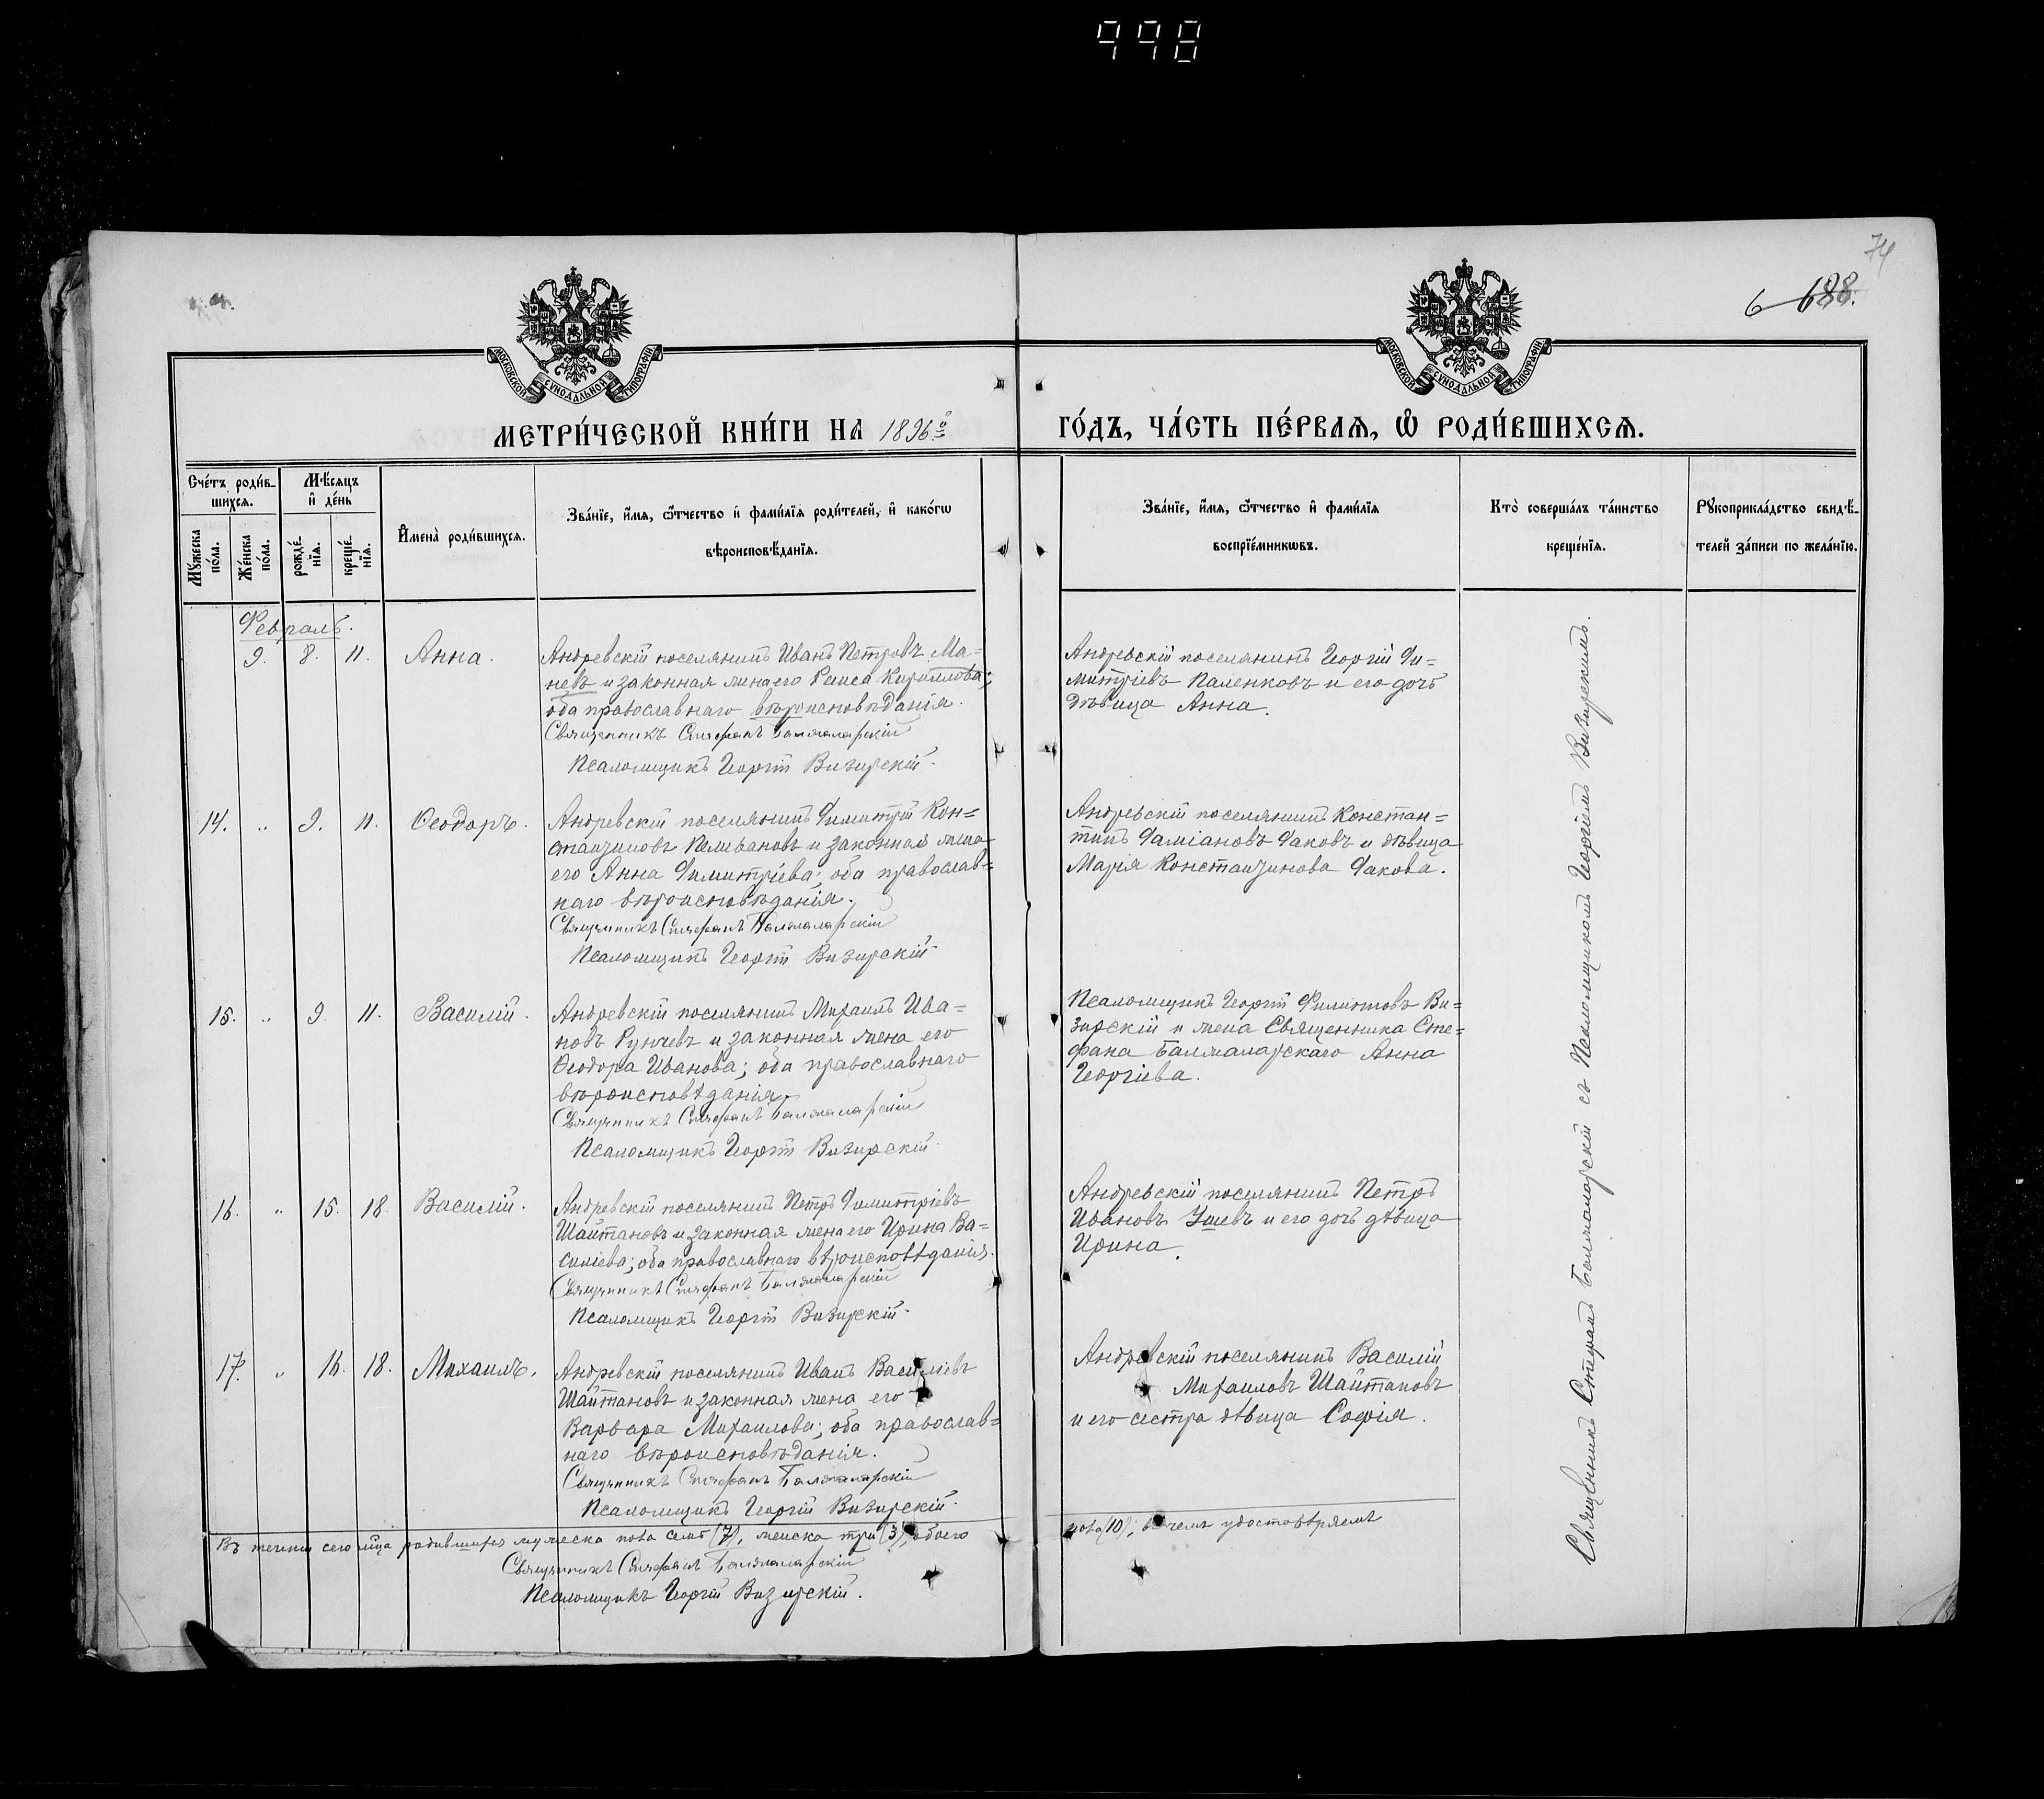 998
74
6 688.
МОСКОВСКОЙ СУНОДАЛЬНОЙ ТИПОГРАФІИ
МОСКОВСКОЙ СУНОДАЛЬНОЙ ТИПОГРАФІИ
МЕТРИ́ЧЕСКОЙ КНИ́ГИ НА 1896й
ГО́ДЪ, ЧА́СТЬ ПЕ́РВАѦ, Ѽ РОДИ́ВШИХСѦ.
Сче́тъ роди́в-
шихсѧ.
Мѣ́сѧцъ
и҆ де́нь
Мꙋ́жеска
по́ла.
Же́нска
по́ла.
рожде́-
нїѧ.
креще́-
нїѧ.
И҆мена̀ роди́вшихсѧ.
Зва́нїе, и҆́мѧ, ѻ҆́тчество и҆ фами́лїѧ роди́телей, и҆ како́гѡ
вѣроисповѣ́данїѧ.
Зва́нїе, и҆́мѧ, ѻ҆́тчество и҆ фами́лїѧ
воспрїе́мникѡвъ.
Кто̀ соверша́лъ та́инство
креще́нїѧ.
Рꙋкоприкла́дство свидѣ́-
телей за́писи по жела́нїю.
Февраль.
9. 8. 11. Анна.
Андреевскій поселянинъ Иванъ Петровъ Ма=
невъ и законная жена его Раиса Кириллова;
оба православнаго вѣроисповѣданія.
Священникъ Стефанъ Балжаларскій
Псаломщикъ Георгій Визирскій.
Андреевскій поселянинъ Георгій Ди=
митріевъ Паленковъ и его дочь
дѣвица Анна.
14. " 9. 11. Ѳеодоръ.
Андреевскій поселянинъ Димитрій Кон=
стантиновъ Пеливановъ и законная жена
его Анна Димитріева; оба православ=
наго вѣроисповѣданія.
Священникъ Стефанъ Балжаларскій
Псаломщикъ Георгій Визирскій
Андреевскій поселянинъ Констан=
тинъ Даміановъ Даковъ и дѣвица
Марія Константинова Дакова.
15. " 9. 11. Василій.
Андреевскій поселянинъ Михаилъ Ива=
новъ Рунчевъ и законная жена его
Ѳеодора Иванова; оба православнаго
вѣроисповѣданія.
Священникъ Стефанъ Балжаларскій
Псаломщикъ Георгій Визирскій.
Псаломщикъ Георгій Филиповъ Ви=
зирскій и жена Священника Сте=
фана Балжаларскаго Анна
Георгіева.
16. " 15. 18. Василій.
Андреевскій поселянинъ Петръ Димитріевъ
Шайтановъ и законная жена его Ирина Ва=
силіева; оба православнаго вѣроисповѣданія.
Священникъ Стефанъ Балжаларскій
Псаломщикъ Георгій Визирскій.
Андреевскій поселянинъ Петръ
Ивановъ Ушевъ и его дочь дѣвица
Ирина.
17. " 16. 18. Михаилъ.
Андреевскій поселянинъ Иванъ Василіевъ
Шайтановъ и законная жена его
Варвара Михаилова; оба православ=
наго вѣроисповѣданія.
Священникъ Стефанъ Балжаларскій
Псаломщикъ Георгій Визирскій.
Андреевскій поселянинъ Василій
Михаиловъ Шайтановъ
и его сестра дѣвица Софія.
Въ теченіи сего мѣсяца родившихся мужеска пола семь (7), женска три (3), обоего
пола (10); въ чемъ удостовѣряемъ
Священникъ Стефанъ Балжаларскій
Псаломщикъ Георгій Визирскій.
Священникъ Стефанъ Балжаларскій съ Псаломщикомъ Георгіемъ Визирскимъ.